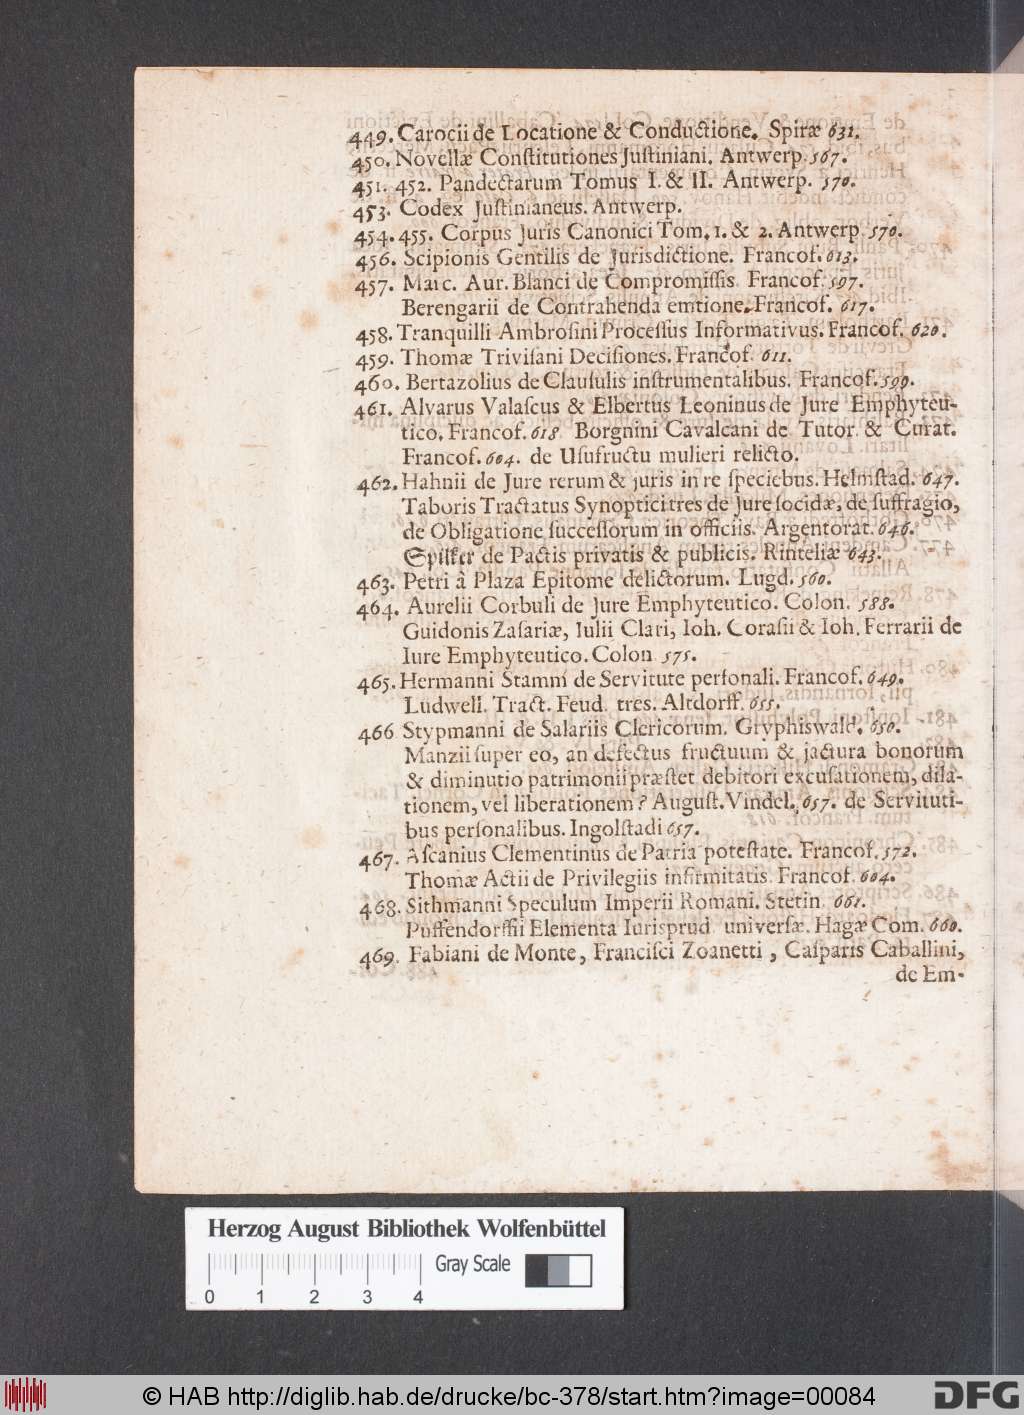 449. Carocii de Locatione & Conductione. Spiræ 631.
450. Novellæ Constitutiones Justiniani. Antwerp. 567.
451. 452. Pandectarum Tomus I. & II. Antwerp. 570.
453. Codex Justinianeus. Antwerp.
454. 455. Corpus Juris Canonici Tom. 1. & 2. Antwerp. 570.
456. Scipionis Gentilis de Jurisdictione. Francof. 613.
457. Marc. Aur. Blanci de Compromissis. Francof. 597.
Berengarii de Contrahenda emtione. Francof. 617.
458. Tranquilli Ambrosini Processus Informativus. Francof. 620.
459. Thomæ Trivisani Decisiones. Francof. 611.
460. Bertazolius de Clausulis instrumentalibus. Francof. 599.
461. Alvarus Valascus & Elbertus Leoninus de Jure Emphyteu-
tico. Francof. 618. Borgnini Cavalcani de Tutor. & Curat.
Francof. 604. de Usufructu mulieri relicto.
462. Hahnii de Jure rerum & juris in re speciebus. Helmstad. 647.
Taboris Tractatus Synoptici tres de Jure socidæ, de suffragio,
de Obligatione successorum in officiis. Argentorat. 646.
Spilker de Pactis privatis & publicis. Rinteliæ 643.
463. Petri â Plaza Epitome delictorum. Lugd. 560.
464. Aurelii Corbuli de Jure Emphyteutico. Colon. 588.
Guidonis Zasariæ, Iulii Clari, Ioh. Corasii & Ioh. Ferrarii de
Iure Emphyteutico. Colon. 575.
465. Hermanni Stamm de Servitute personali. Francof. 649.
Ludwell. Tract. Feud. tres. Altdorff. 655.
466 Stypmanni de Salariis Clericorum. Gryphiswald. 650.
Manzii super eo, an defectus fructuum & jactura bonorum
& diminutio patrimonii præstet debitori excusationem, dila-
tionem, vel liberationem? August. Vindel. 657. de Servituti-
bus personalibus. Ingolstadi 657.
467. Ascanius Clementinus de Patria potestate. Francof. 572.
Thomæ Actii de Privilegiis infirmitatis. Francof. 604.
468. Sithmanni Speculum Imperii Romani. Stetin. 661.
Puffendorffii Elementa Iurisprud. universæ. Hagæ Com. 660.
469. Fabiani de Monte, Francisci Zoanetti, Casparis Caballini,
de Em-
Herzog August Bibliothek Wolfenbüttel
Gray Scale
0 1 2 3 4
© HAB http://diglib.hab.de/drucke/bc-378/start.htm?image=00084
DFG